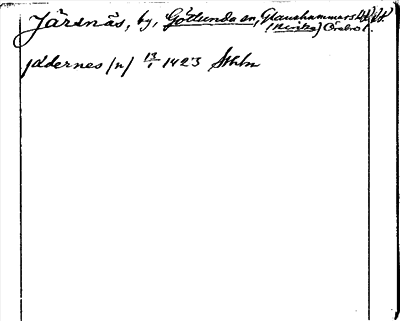 Järsnäs, by, Götlunda sn, Glanshammars
Örebro l.
jädernes /n/ 13/1 1423 Sthlm